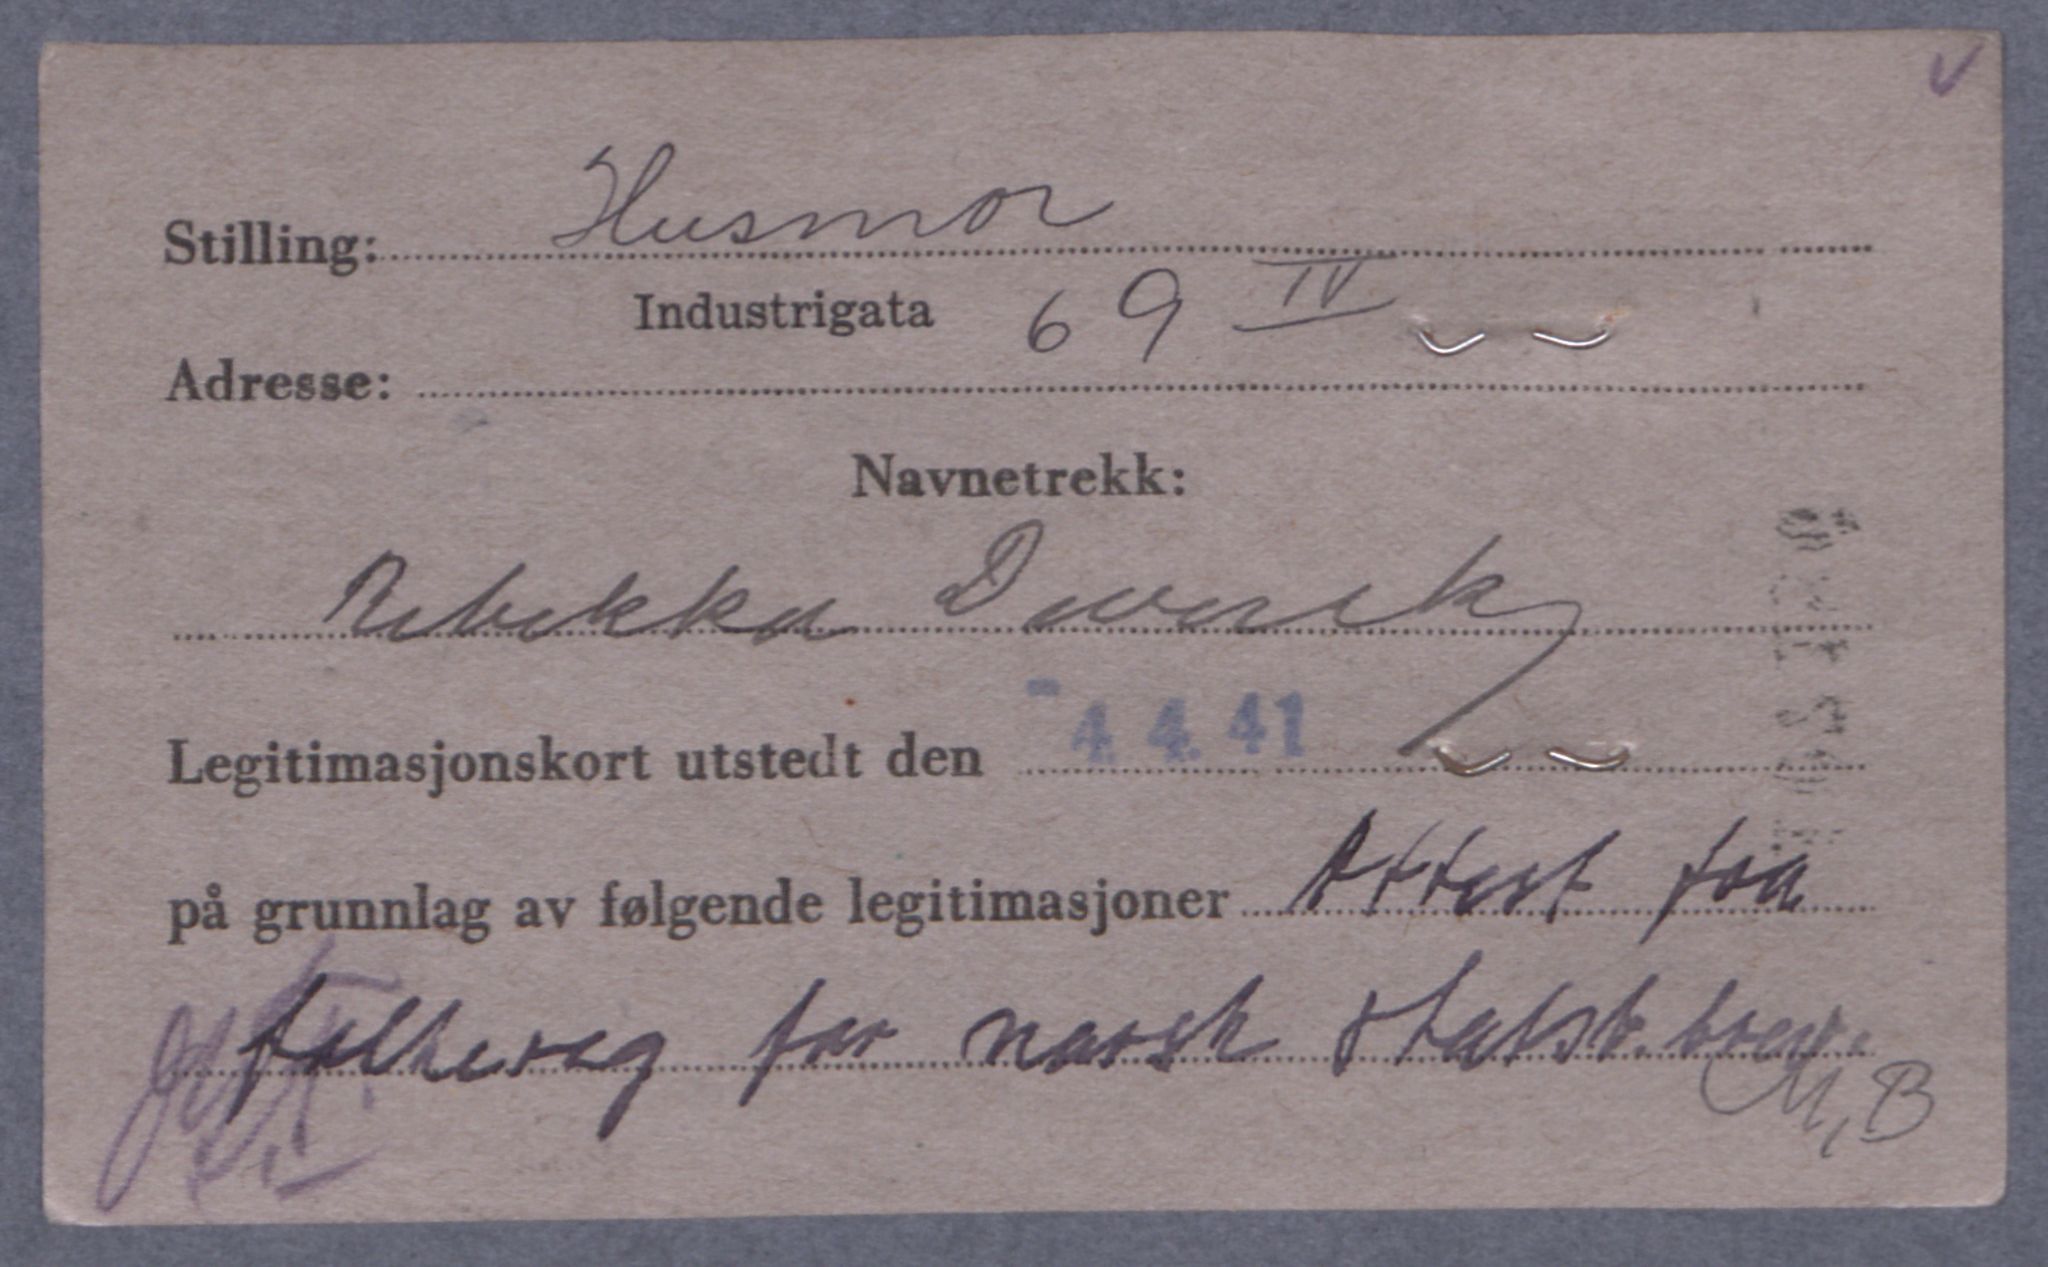 Stilling: Husmor
Industrigata 69 IV
Adresse:
Navnetrekk:
Rebekka Dworsk
Legitimasjonskort utstedt den -4. 4. 41
på grunnlag av følgende legitimasjoner Attest fra
folkereg for norsk statsb. brev.
M, B